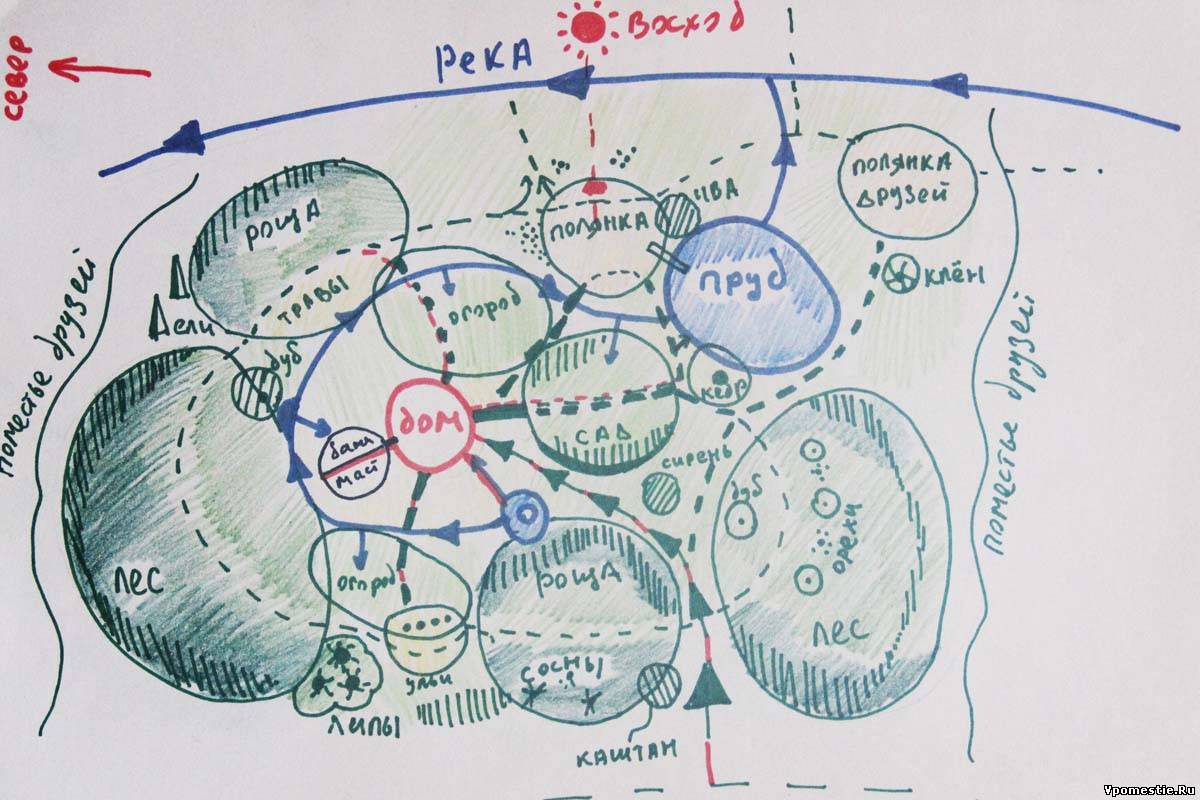 ВОСХОД
север
РЕКА
ПОЛЯНКА
ДРУЗЕЙ
ИВА
РОЩА
ПОЛЯНКА
ПРУД
КЛЁН
ТРАВЫ
огород
ели
Поместье друзей
поместье друзей
дуб
кедр
дом
САД
баня
маст
сирень
дуб
орехи
ЛЕС
огород
РОЩА
ЛЕС
сосны
ульи
ЛИПЫ
КАШТАН
Vpomestie.Ru